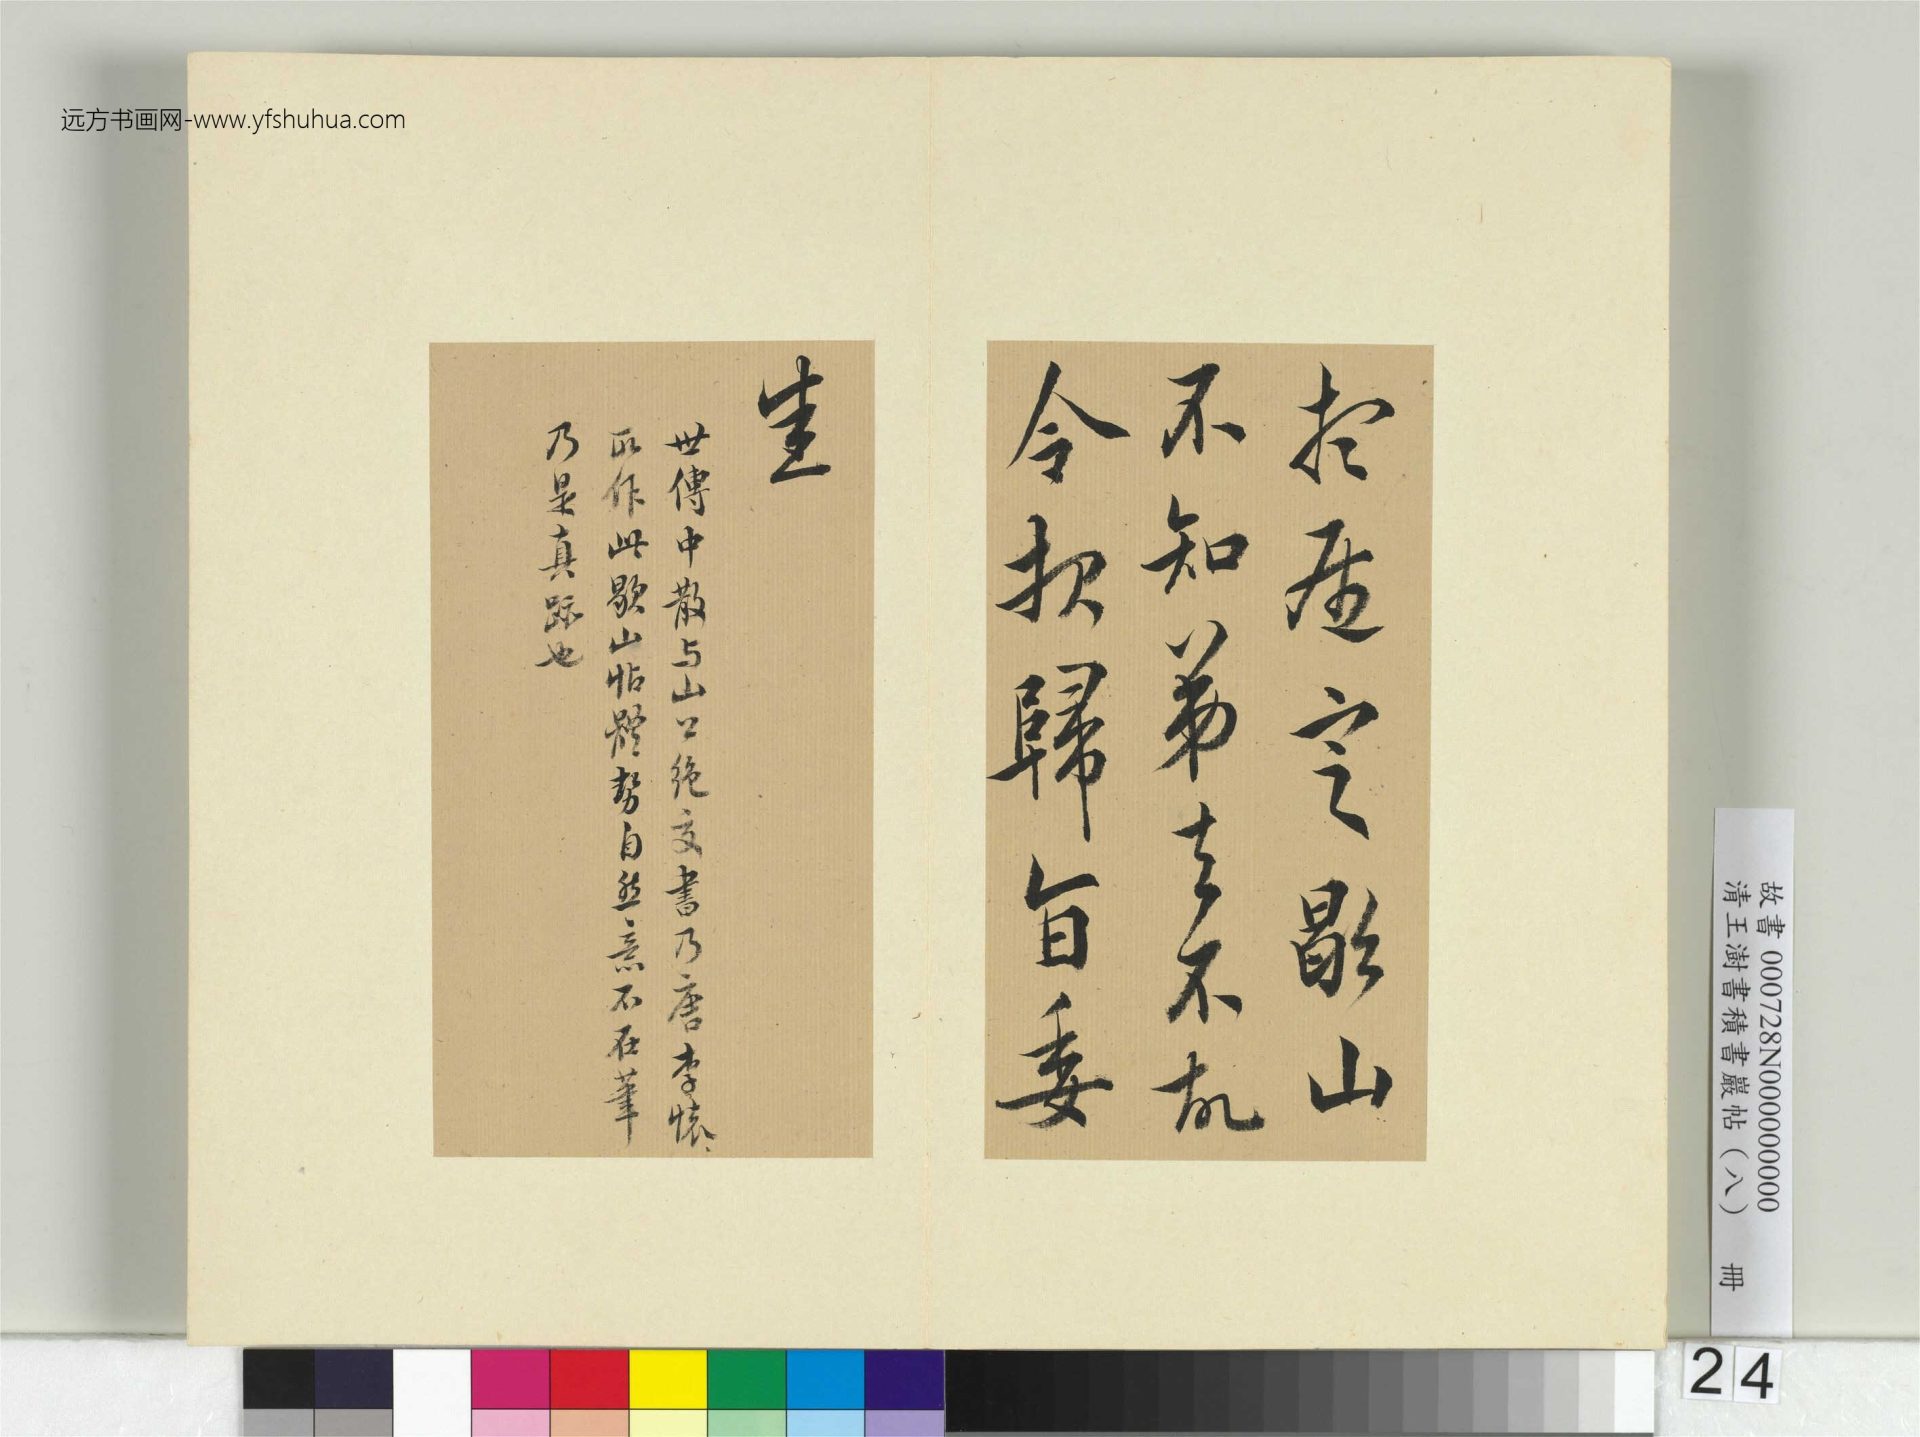 远方书画网-www.yfshuhua.com
想屋定歇山
不知弟去不故
今投歸旨委
世傳中散与山公絶交書乃唐李懷
所作此歇山帖體勢自然意不在筆
乃是真跡也
故書 000728N000000000
清王澍書積書巖帖（八） 冊
24